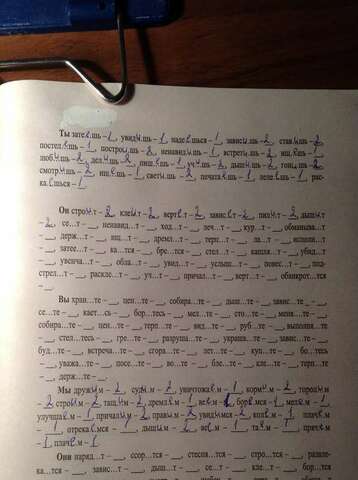 Ты затеешь – 1, увидишь – 1, надеешься – 1, зависишь – 2, ставишь – 2
постелешь – 1, построишь – 2, ненавидишь – 1, встретишь – 2, ищешь – 1
любишь – 2, делишь – 2, пишешь – 1, учишь – 2, дышишь – 2, гонишь – 2
смотришь – 2, ищешь – 1, светишь – 2, печатаешь – 1, лелеешь – 1, рас-
каешься – 1
Он строит – 2, клеит – 2, вертит – 2, зависит – 2, пилит – 2, дышит
– 2, се…т – __, ненавид…т – __, ход…т – __, леч…т – __, кур…т – __, обманыва…т
– __, держ…т – __, ищ…т – __, дремл…т – __, терп…т – __, ла…т – __, исцели…т
– __, затее…т – __, ка…тся – __, бре…тся – __, стел…т – __, капл…т – __, убад…т
– __, увенча…т – __, обла…т – __, увид…т – __, услыш…т – __, повес…т – __, под-
стрел…т – __, раскле…т – __, уч…т – __, причал…т – __, верт…т – __, обанкрот…тся
– __.
Вы хран…те – __, цен…те – __, собира…те – __, дыш…те – __, завис…те – __,
се…те – __, кает…сь – __, бор…тесь – __, мел…те – __, сто…те – __, меня…те – __,
собира…те – __, цен…те – __, терп…те – __, вид…те – __, руб…те – __, выполня…те
– __, стел…тесь – __, гре…те – __, разруша…те – __, украша…те – __, завис…те – __,
буд…те – __, встреча…те – __, сгора…те – __, лет…те – __, куп…те – __, бо…тесь
– __, уважа…те – __, посе…те – __, во…те – __, бле…те – __, кле…те – __, терп…те
– __, держ…те – __.
Мы дружим – 2, судим – 2, уничтожаем – 1, кормим – 2, торопим –
2, строим – 2, тащим – 2, дремлем – 1, веем – 1, боремся – 1, мелем – 1,
улучшаем – 1, причалим – 2, правим – 2, увидимся – 2, колем – 1, плачем
– 1, отрекаемся – 1, дышим – 2, веем – 1, таем – 1, прячем
– 1, плачем – 1
Они наряд…т – __, ссор…тся – __, стесня…тся – __, стро…тся – __, развле-
ка…тся – __, завис…т – __, дыш…т – __, се…т – __, кле…т – __, бор…тся